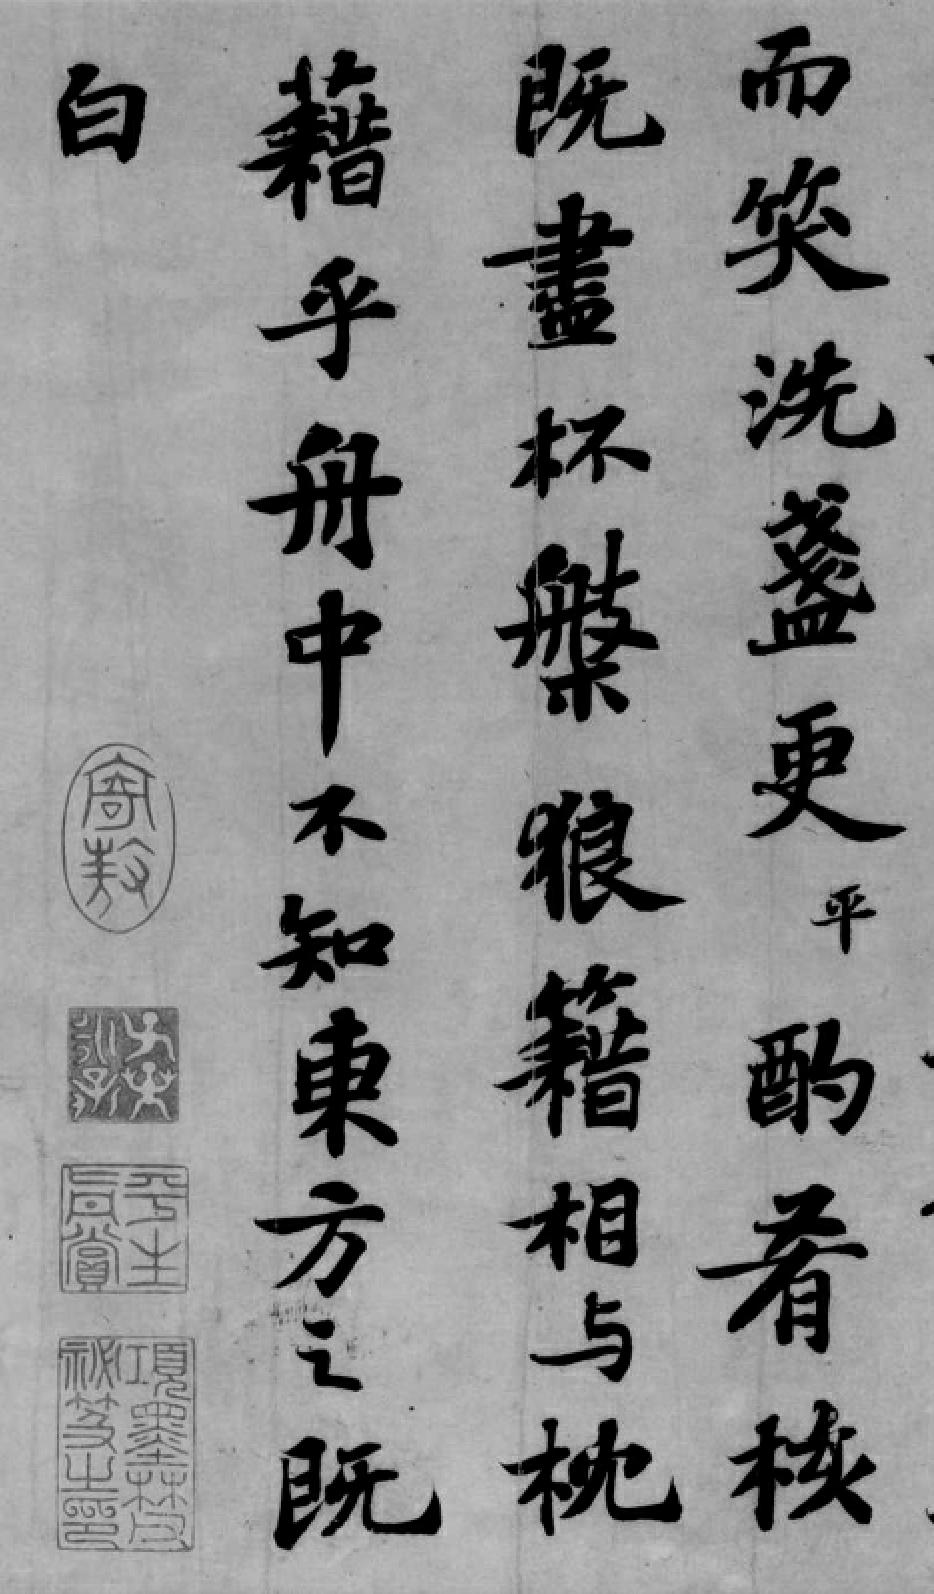 而笑洗盞更平酌肴核
既盡杯槃狼籍相与枕
藉乎舟中不知東方之既
白
平生真賞
項墨林父祕笈之印